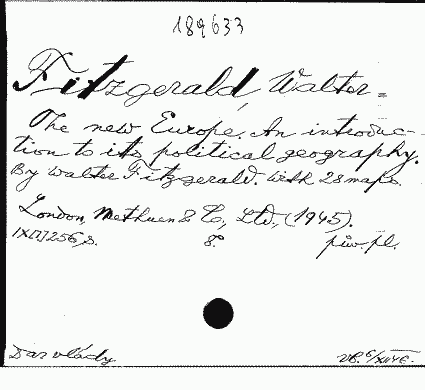 189633
Fitzgerald, Walter=
The new Europe. An introduc-
tion to its political geography.
By Walter Fitzgerald. With 28 maps.
London, Methuen & C°, Ltd., (1945).
IX[I]256,s. 8° pův. pl.
Dar vlády